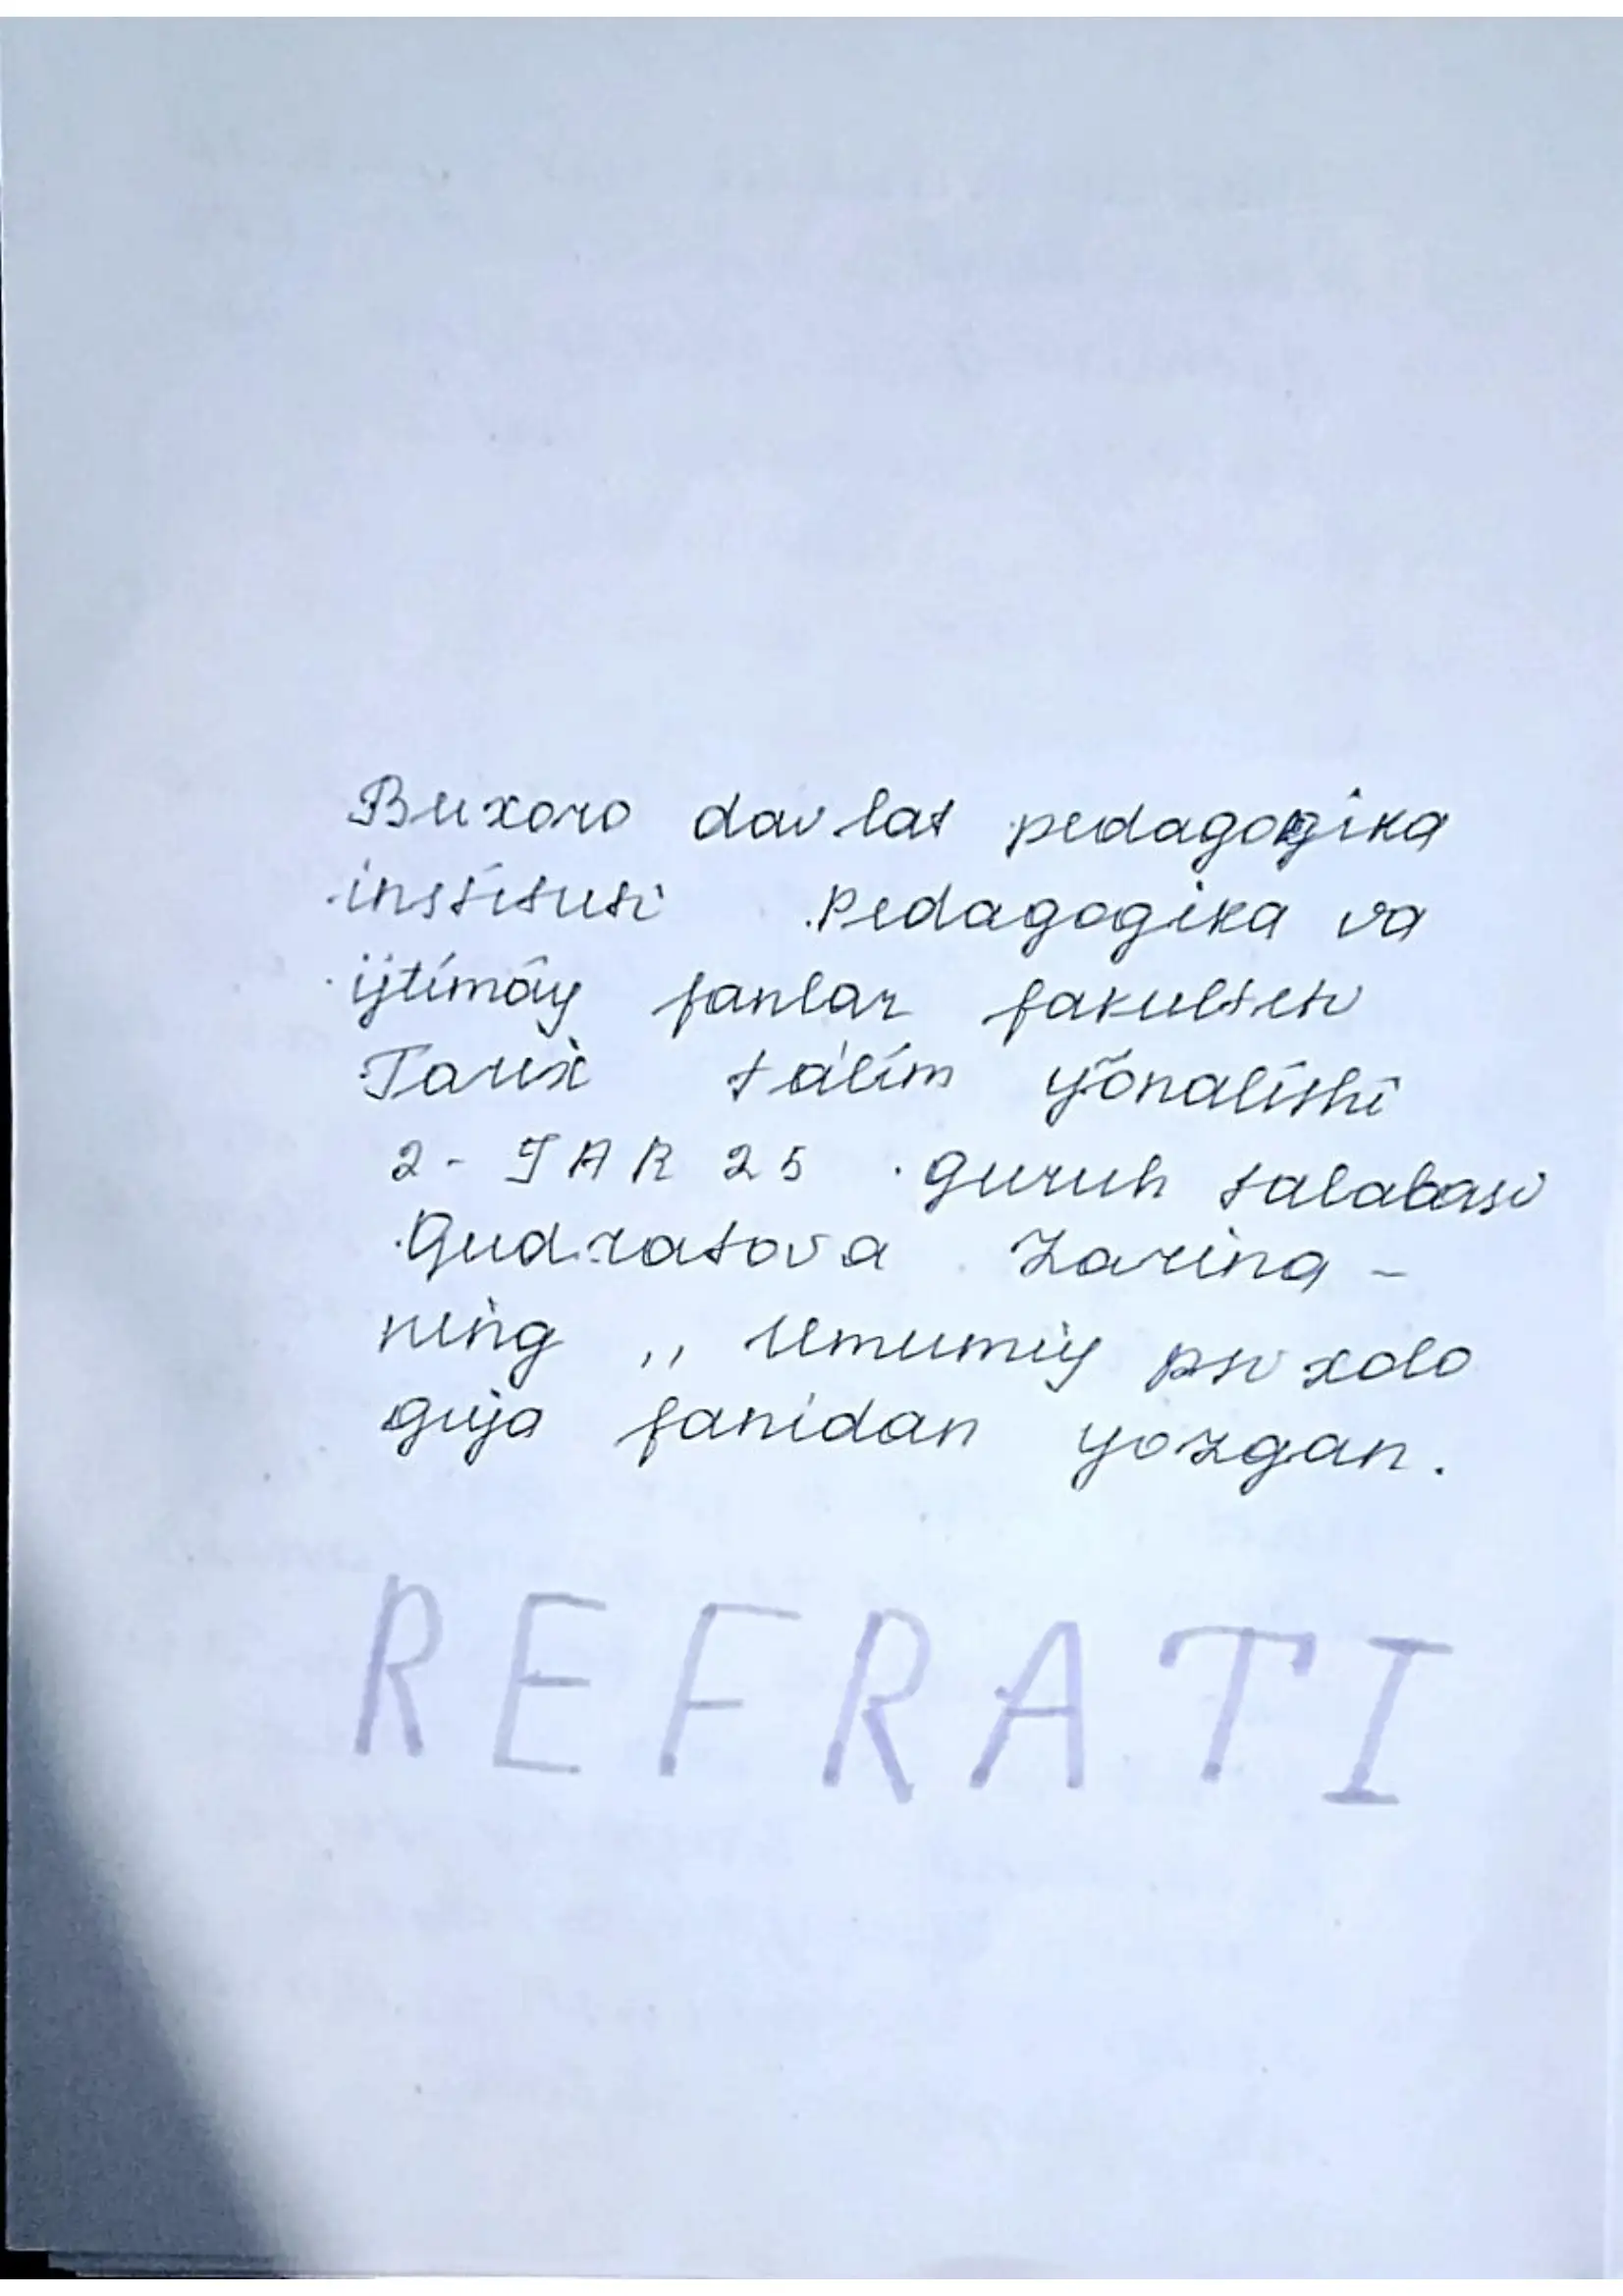 Buxoro davlat pedagogika
instituti pedagogika va
ijtimoiy fanlar fakulteti
Tarix ta'lim yõnalishi
2-TAR 25 guruh talabasi
Qudratova Zarina-
ning ,, Umumiy psixolo
giya fanidan yozgan.
REFRATI